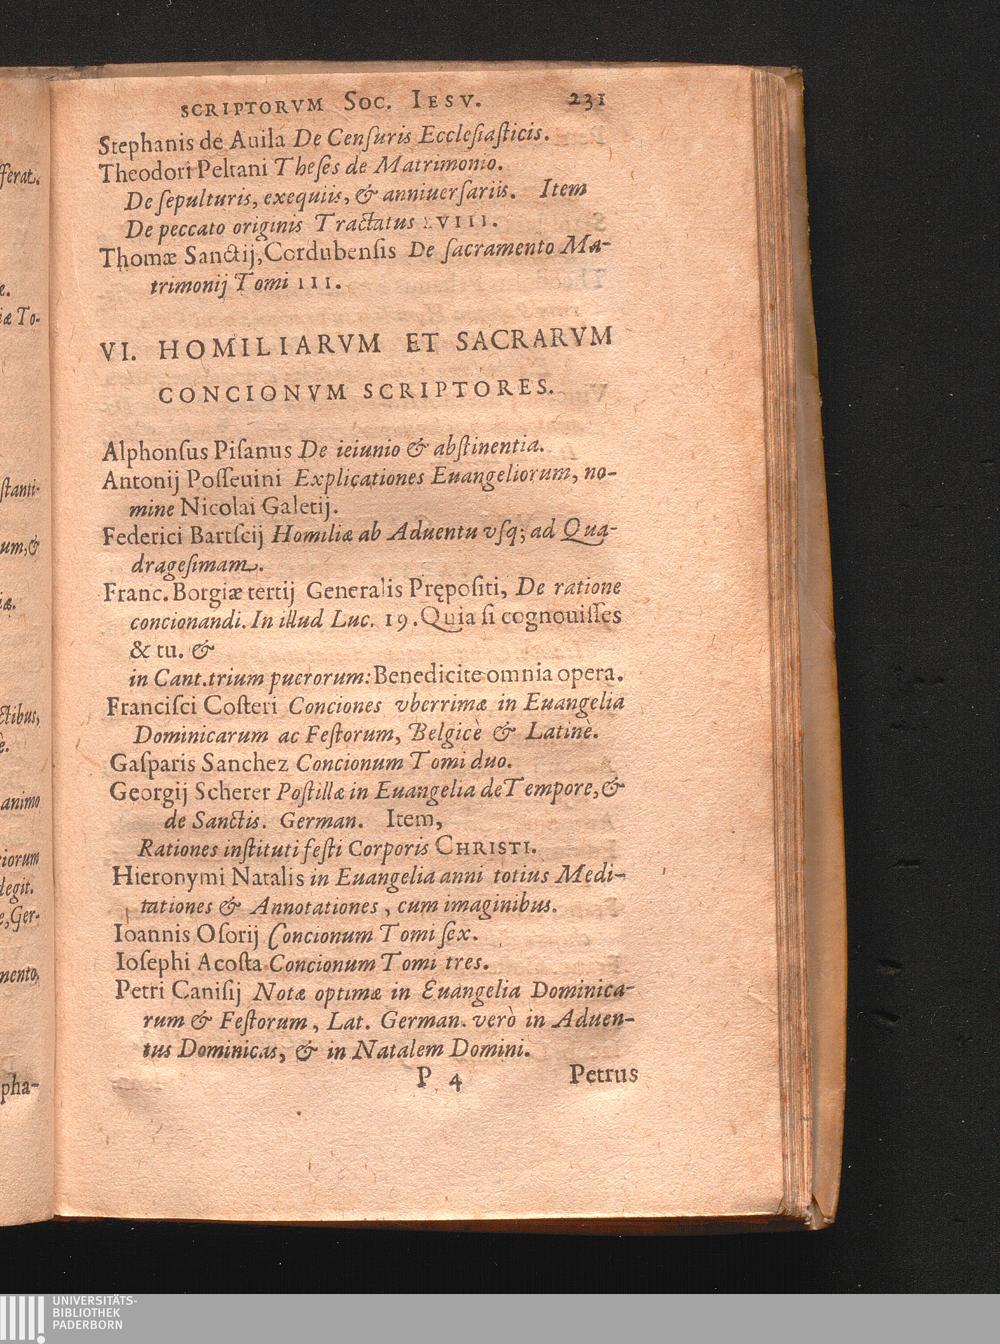 SCRIPTORVM SOC. IESV. 231
Stephanis de Auila De Cenſuris Eccleſiaſticis.
Theodori Peltani Theſes de Matrimonio.
De ſepulturis, exequiis, & anniuerſariis. Item
De peccato originis Tractatus LVIII.
Thomæ Sanctij, Cordubenſis De ſacramento Ma-
trimonij Tomi III.
VI. HOMILIARVM ET SACRARVM
CONCIONVM SCRIPTORES.
Alphonſus Piſanus De ieiunio & abſtinentia.
Antonij Poſſeuini Explicationes Euangeliorum, no-
mine Nicolai Galetij.
Federici Bartſcij Homiliæ ab Aduentu vſq; ad Qua-
drageſimam.
Franc. Borgiæ tertij Generalis Prępoſiti, De ratione
concionandi. In illud Luc. 19. Quia ſi cognouiſſes
& tu. &
in Cant. trium puerorum: Benedicite omnia opera.
Franciſci Coſteri Conciones vberrimæ in Euangelia
Dominicarum ac Feſtorum, Belgicè & Latinè.
Gaſparis Sanchez Concionum Tomi duo.
Georgij Scherer Poſtillæ in Euangelia de Tempore, &
de Sanctis. German. Item,
Rationes inſtituti feſti Corporis CHRISTI.
Hieronymi Natalis in Euangelia anni totius Medi-
tationes & Annotationes, cum imaginibus.
Ioannis Oſorij Concionum Tomi ſex.
Ioſephi Acoſta Concionum Tomi tres.
Petri Caniſij Notæ optimæ in Euangelia Dominica-
rum & Feſtorum, Lat. German. verò in Aduen-
tus Dominicas, & in Natalem Domini.
P 4 Petrus
fferat.
æ.
iæ To-
ſtanti-
um, &
iæ.
ctibus,
è.
animo
ciorum
legit.
e, Ger-
mento,
pha-
UNIVERSITÄTS-
BIBLIOTHEK
PADERBORN